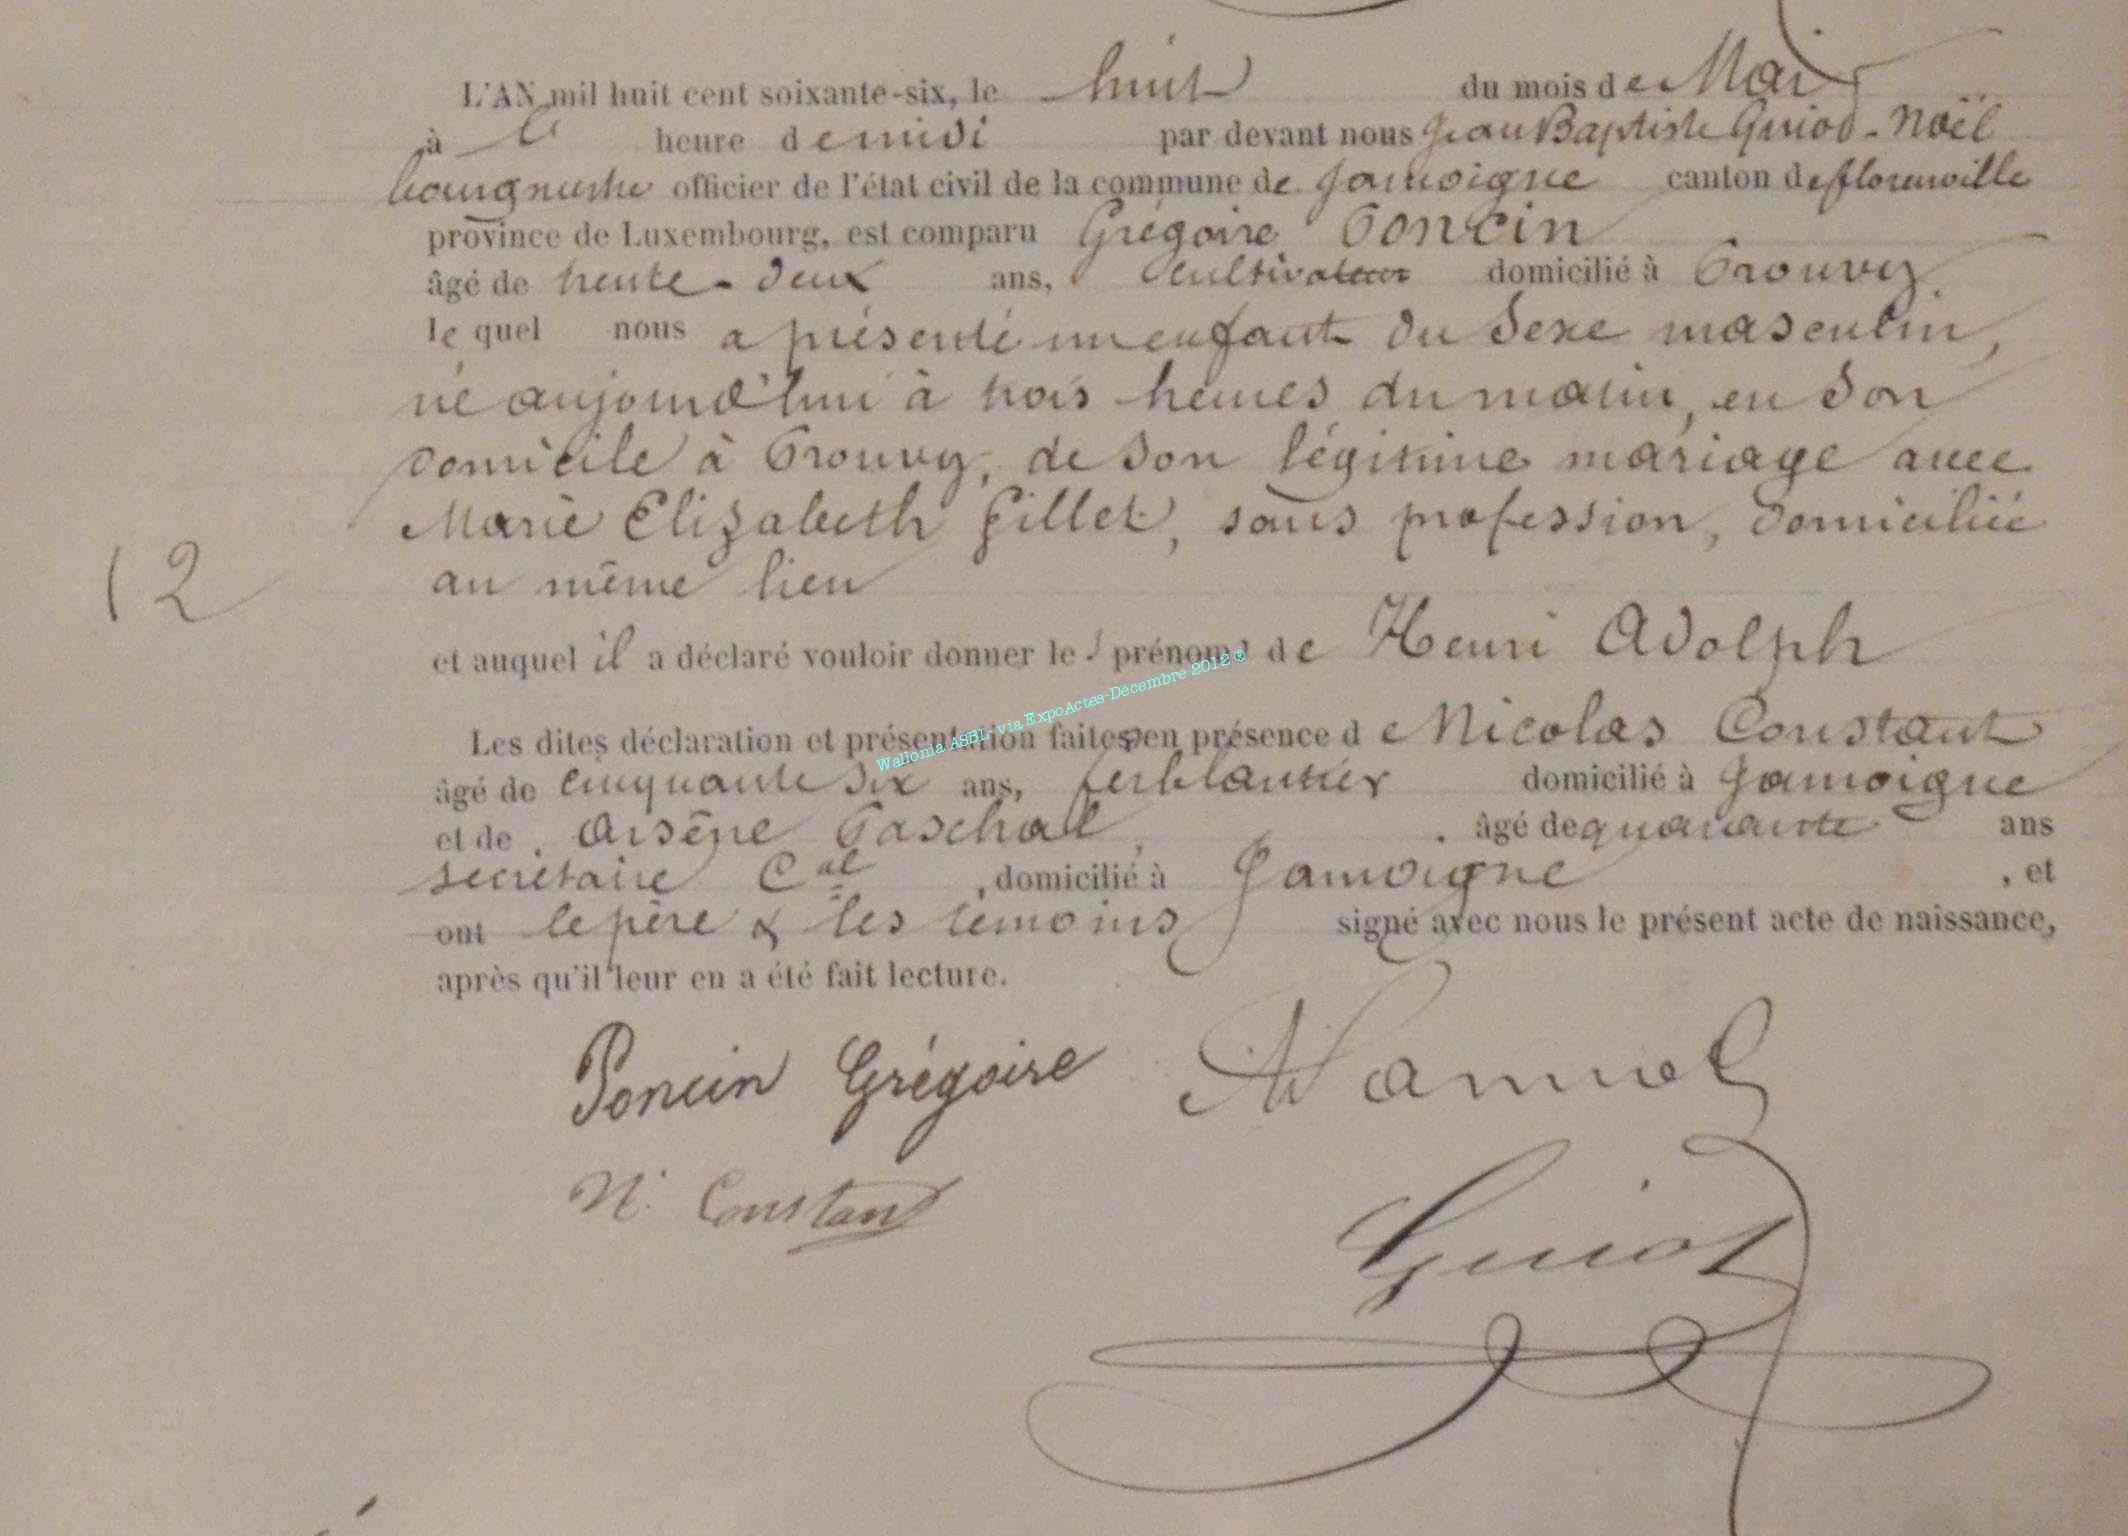 L'AN mil huit cent soixante-six, le huit du mois de Mai
à l' heure de midi par devant nous Jean Baptiste Guiot-Noël
bourgmestre officier de l'état civil de la commune de Jamoigne canton de florenville
province de Luxembourg, est comparu Grégoire Poncin
âgé de trente-deux ans, cultivateur domicilié à Prouvy
lequel nous a présenté un enfant du sexe masculin,
né aujourd'hui à trois heures du matin, en son
domicile à Prouvy, de son légitime mariage avec
Marie Elizabeth Gillet, sans profession, domiciliée
12
au même lieu
et auquel il a déclaré vouloir donner les prénoms de Henri Adolph
Wallonia ASBL- via ExpoActes-Décembre 2012 ®
Les dites déclaration et présentation faites en présence de Nicolas Constant
âgé de cinquante six ans, ferblantier domicilié à Jamoigne
et de Arsène Paschal, âgé de quarante ans
secrétaire Cal, domicilié à Jamoigne, et
ont le père & les témoins signé avec nous le présent acte de naissance,
après qu'il leur en a été fait lecture.
Poncin Grégoire
N. Constant
Guiot